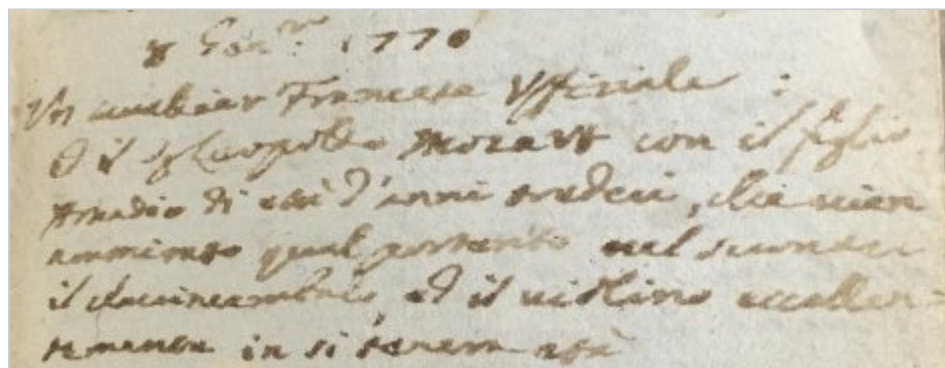 8 Gen.ro 1770
Un Francese Uffiziale :
ed il Sig. Leopoldo Mozart con il figlio
Amadio di età d'anni tredeci, che vien
ammirato qual portento nel suonare
il clavincembalo, ed il violino eccellen=
temente in sì tenera età